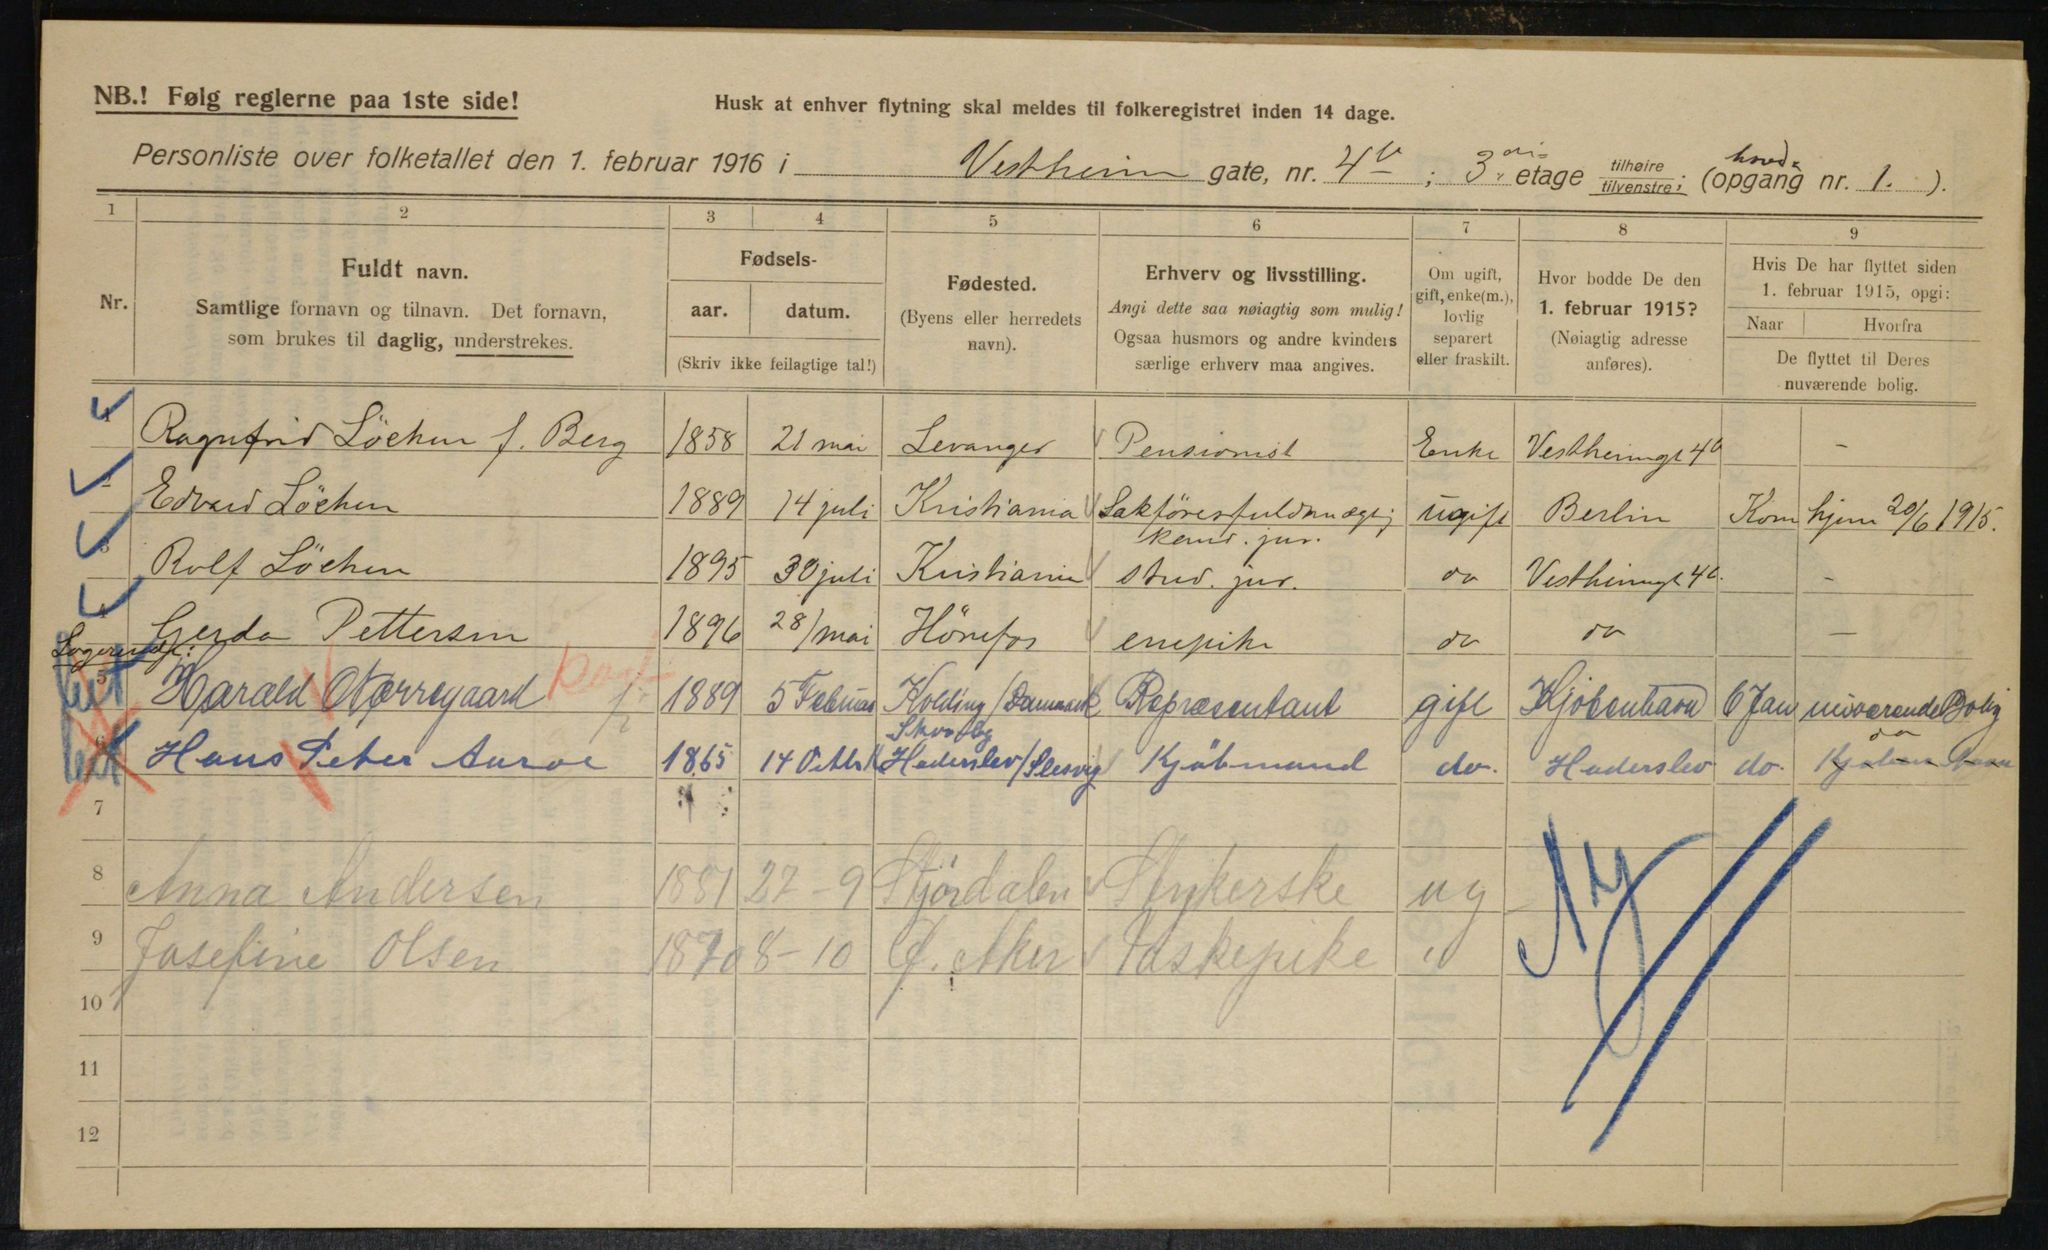 NB.! Følg reglerne paa 1ste side!
Husk at enhver flytning skal meldes til folkeregistret inden 14 dage.
Personliste over folketallet den 1. februar 1916 i Vestheim gate, nr. 4b ; 3. etage tilhøire tilvenstre; (opgang nr. 1. ).
1 2 3 4 5 6 7 8 9
Nr.
Fuldt navn.
Samtlige fornavn og tilnavn. Det fornavn,
som brukes til daglig, understrekes.
Fødsels-
aar. datum.
(Skriv ikke feilagtige tal!)
Fødested.
(Byens eller herredets
navn).
Erhverv og livsstilling.
Angi dette saa nøiagtig som mulig!
Ogsaa husmors og andre kvinders
særlige erhverv maa angives.
Om ugift,
gift, enke(m.),
lovlig
separert
eller fraskilt.
Hvor bodde De den
1. februar 1915?
(Nøiagtig adresse
anføres).
Hvis De har flyttet siden
1. februar 1915, opgi:
Naar Hvorfra
De flyttet til Deres
nuværende bolig.
1 Ragnfrid Löchen f. Berg 1858 21 mai Levanger Pensionist Enke Vestheimgt 4b –
2 Edvard Löchen 1889 14 juli Kristiania Sakförerfuldmægtig ugift Berlin Kom hjem 20/6 1915.
kand. jur.
3 Rolf Löchen 1895 30 juli Kristiania stud. jur. do Vestheimgt 4b. –
4 Gerda Pettersen 1896 28/ mai Hönefos enepike do do –
Logerende:
5 Harald Nörregaard 1889 5 Februar Kolding/Danmark Repræsentant gift Kjöbenhavn 6 Jan nuværende Bolig
6 Hans Peter Aaroe 1865 14 Oktbr Haderslev/Slesvig Kjöbmand do. Haderslev do. do
7
8 Anna Andersen 1881 27-9 Stjördalen Strykerske ug
9 Josefine Olsen 1870 8-10 Ø. Aker Vaskepike "
Ny
10
11
12